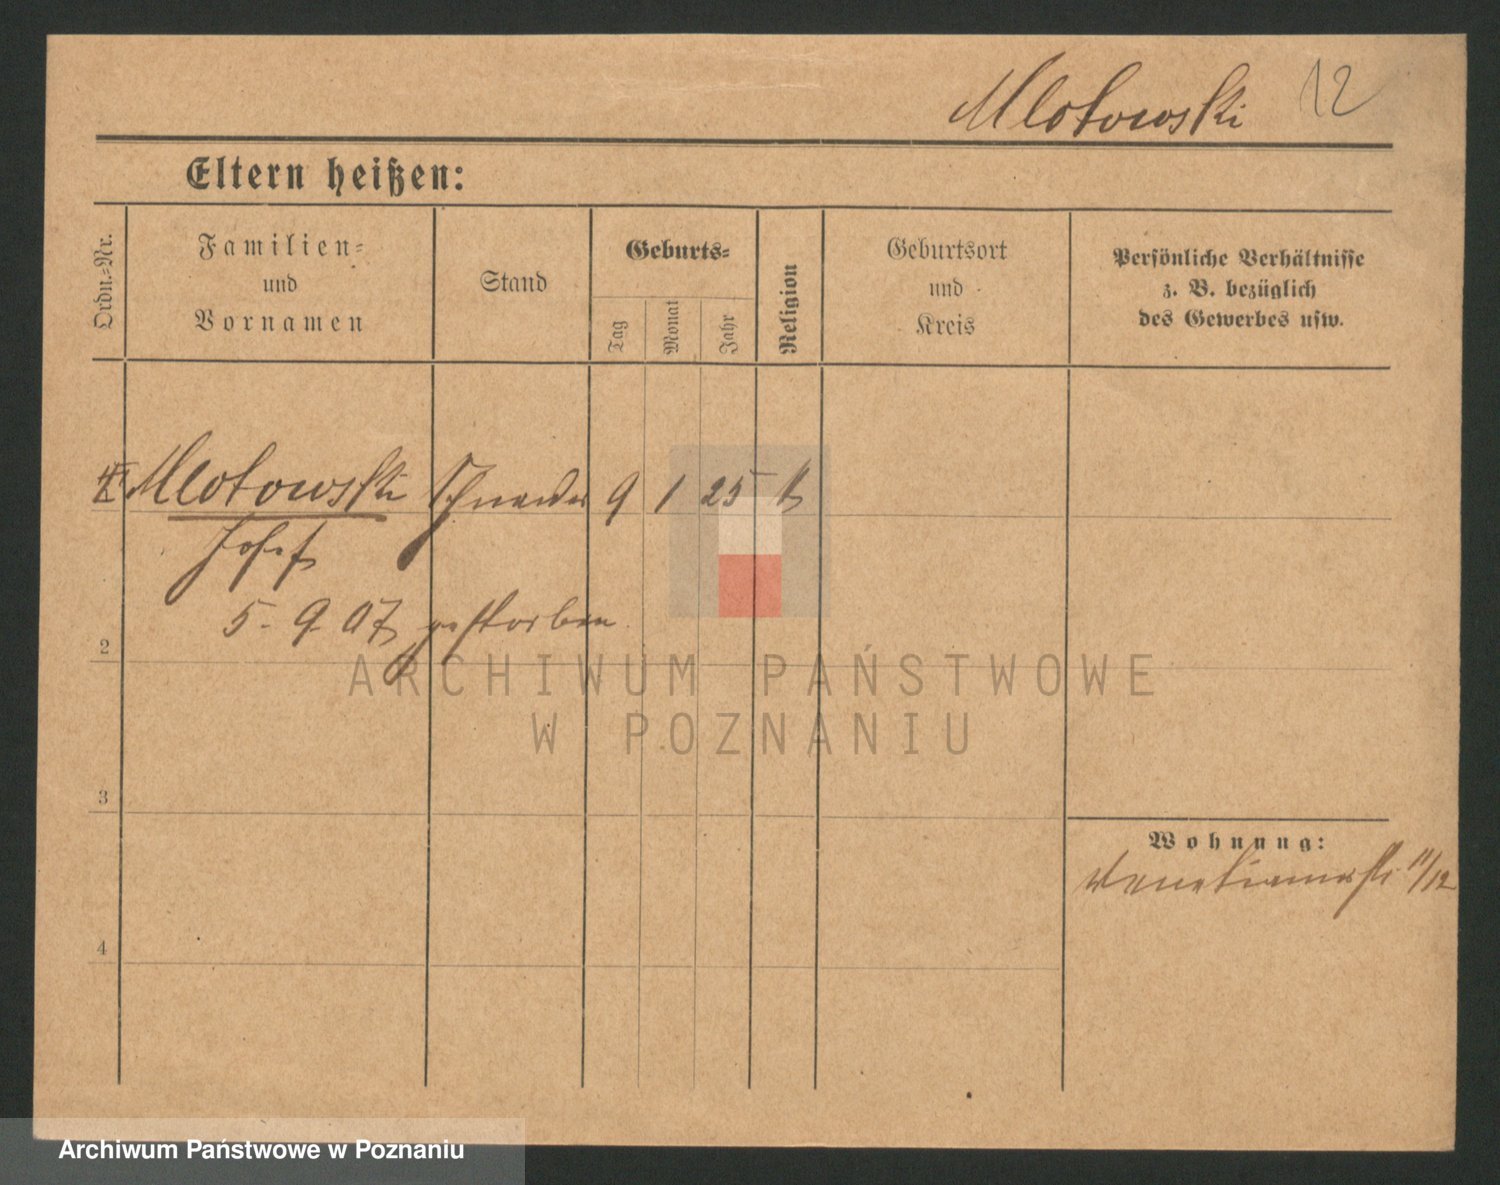 Mlotowski 12
Eltern heißen:
Ordn.-Nr.
Familien-
und
Vornamen
Stand
Geburts-
Tag
Monat
Jahr
Religion
Geburtsort
und
Kreis
Persönliche Verhältnisse
z. B. bezüglich
des Gewerbes usw.
Mlotowski Schneider 9 1 25 k
Josef
5. 9. 07 gestorben
2
3
4
Wohnung:
Venetianerstr. 11/12
ARCHIWUM PAŃSTWOWE
W POZNANIU
Archiwum Państwowe w Poznaniu